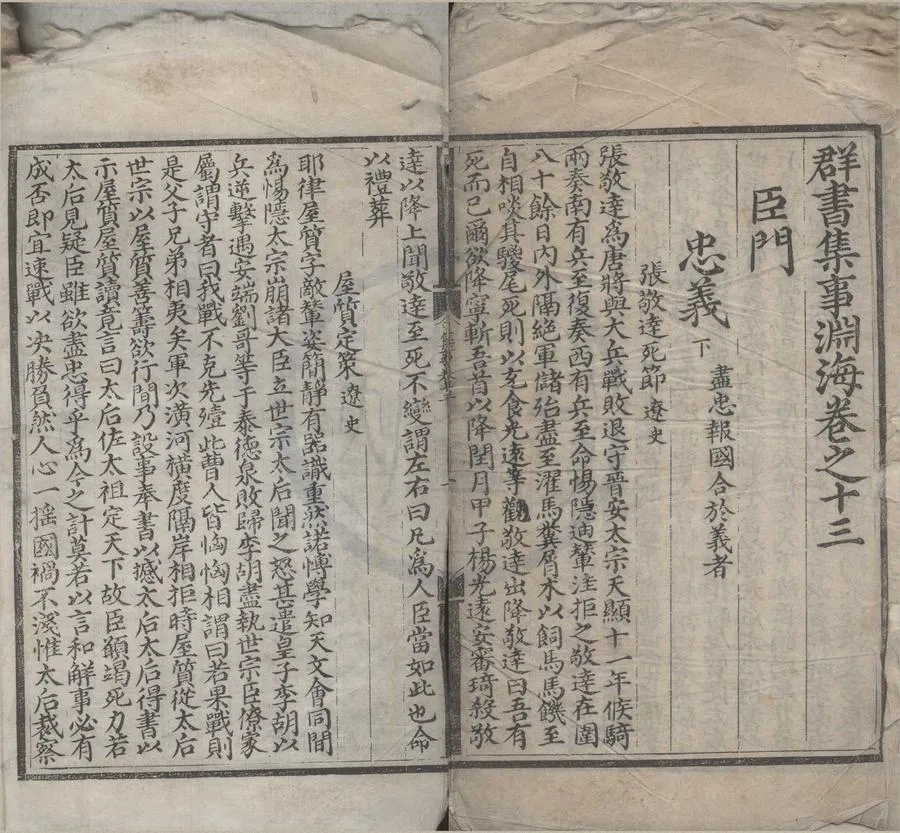 群書集事淵海卷之十三
臣門
忠義下 盡忠報國合於義者
張敬達死節 遼史
張敬達爲唐將與大兵戰敗退守晉安太宗天顯十一年候騎
兩奏南有兵至復奏西有兵至命惕隱迪輦洼拒之敬達在圍
八十餘日內外隔絶軍儲殆盡至濯馬糞屑木以飼馬馬饑至
自相啖其騣尾死則以充食光遠等勸敬達出降敬達曰吾有
死而已爾欲降寧斬吾首以降閏月甲子楊光遠安審琦殺敬
達以降上聞敬達至死不變謂左右曰凡爲人臣當如此也命
以禮葬
屋質定策 遼史
耶律屋質字敵輦姿簡靜有器識重然諾愽學知天文會同間
爲惕隱太宗崩諸大臣立世宗太后聞之怒甚遣皇子李胡以
兵逆擊遇安端劉哥等于泰德泉敗歸李胡盡執世宗臣僚家
屬謂守者曰我戰不克先殪此曹人皆恟恟相謂曰若果戰則
是父子兄弟相夷矣軍次潢河横度隔岸相拒時屋質從太后
世宗以屋質善籌欲行間乃設事奉書以撼太后太后得書以
示屋質屋質讀竟言曰太后佐太祖定天下故臣願竭死力若
太后見疑臣雖欲盡忠得乎爲今之計莫若以言和解事必有
成否即宜速戰以决勝負然人心一摇國禍不淺惟太后裁察